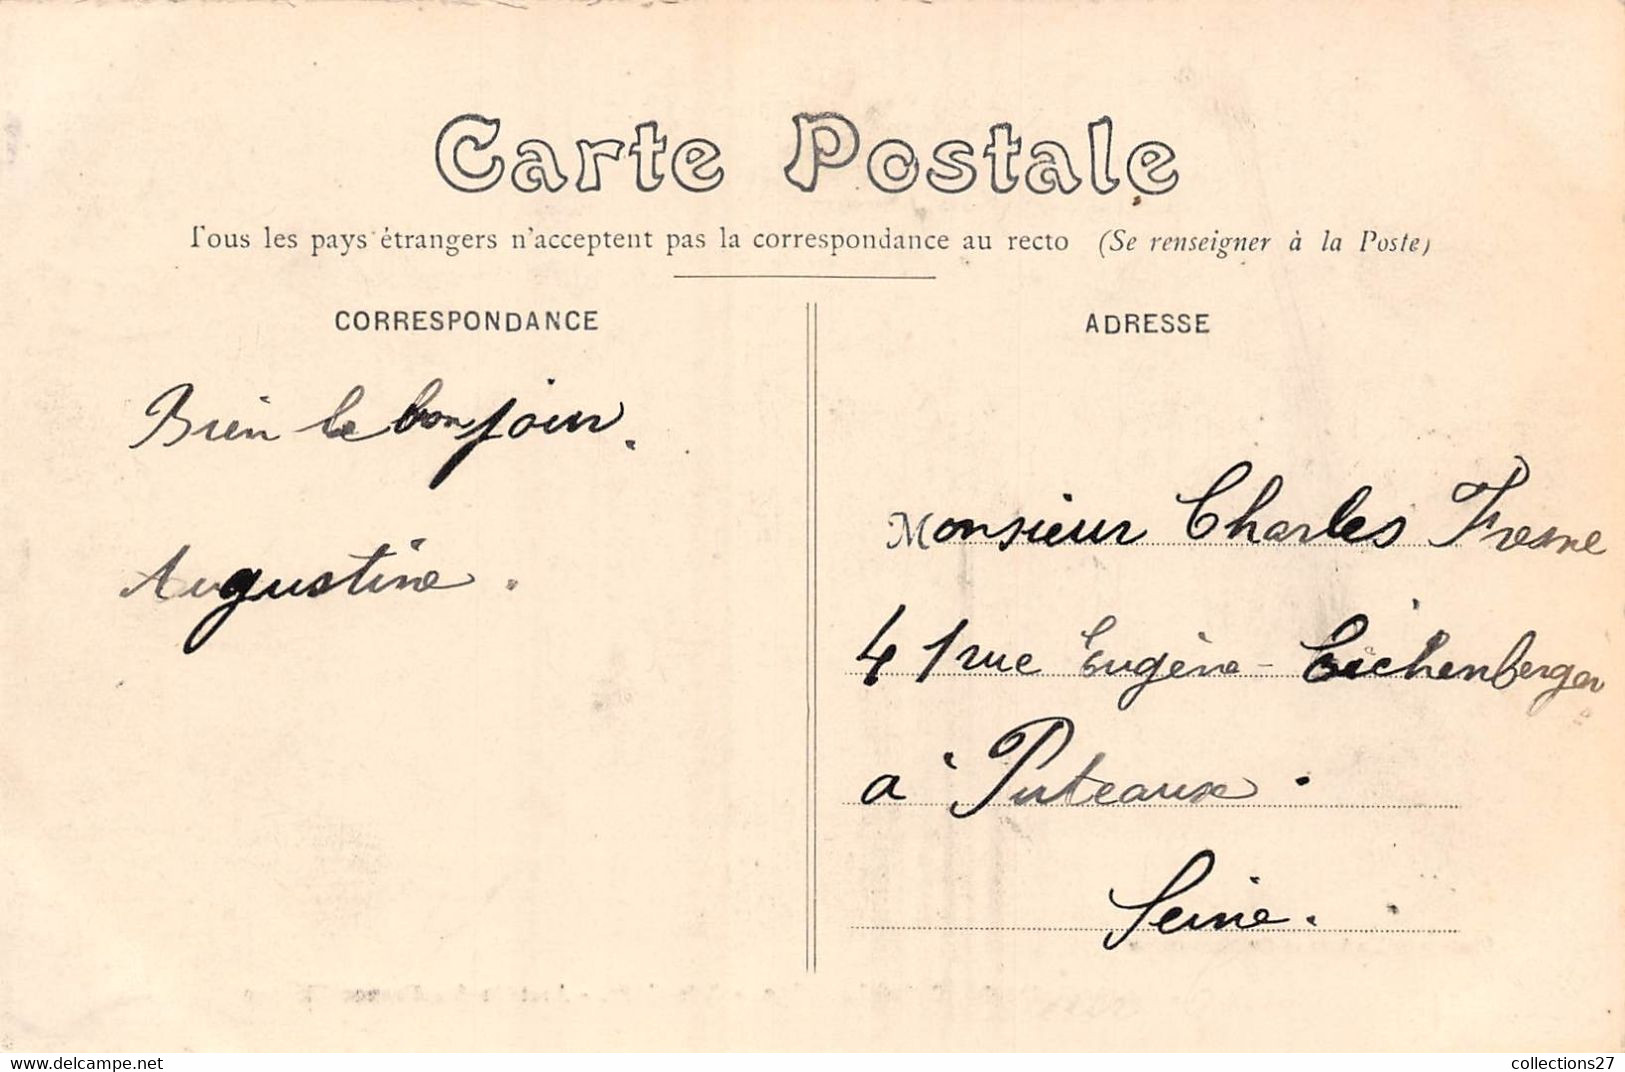 Carte Postale
Tous les pays étrangers n'acceptent pas la correspondance au recto (Se renseigner à la Poste)
CORRESPONDANCE
Bien le bonjour.
Augustine.
ADRESSE
Monsieur Charles Fresne
41 rue Eugène-Eichenberger
à Puteaux.
Seine.
www.delcampe.net
collections27